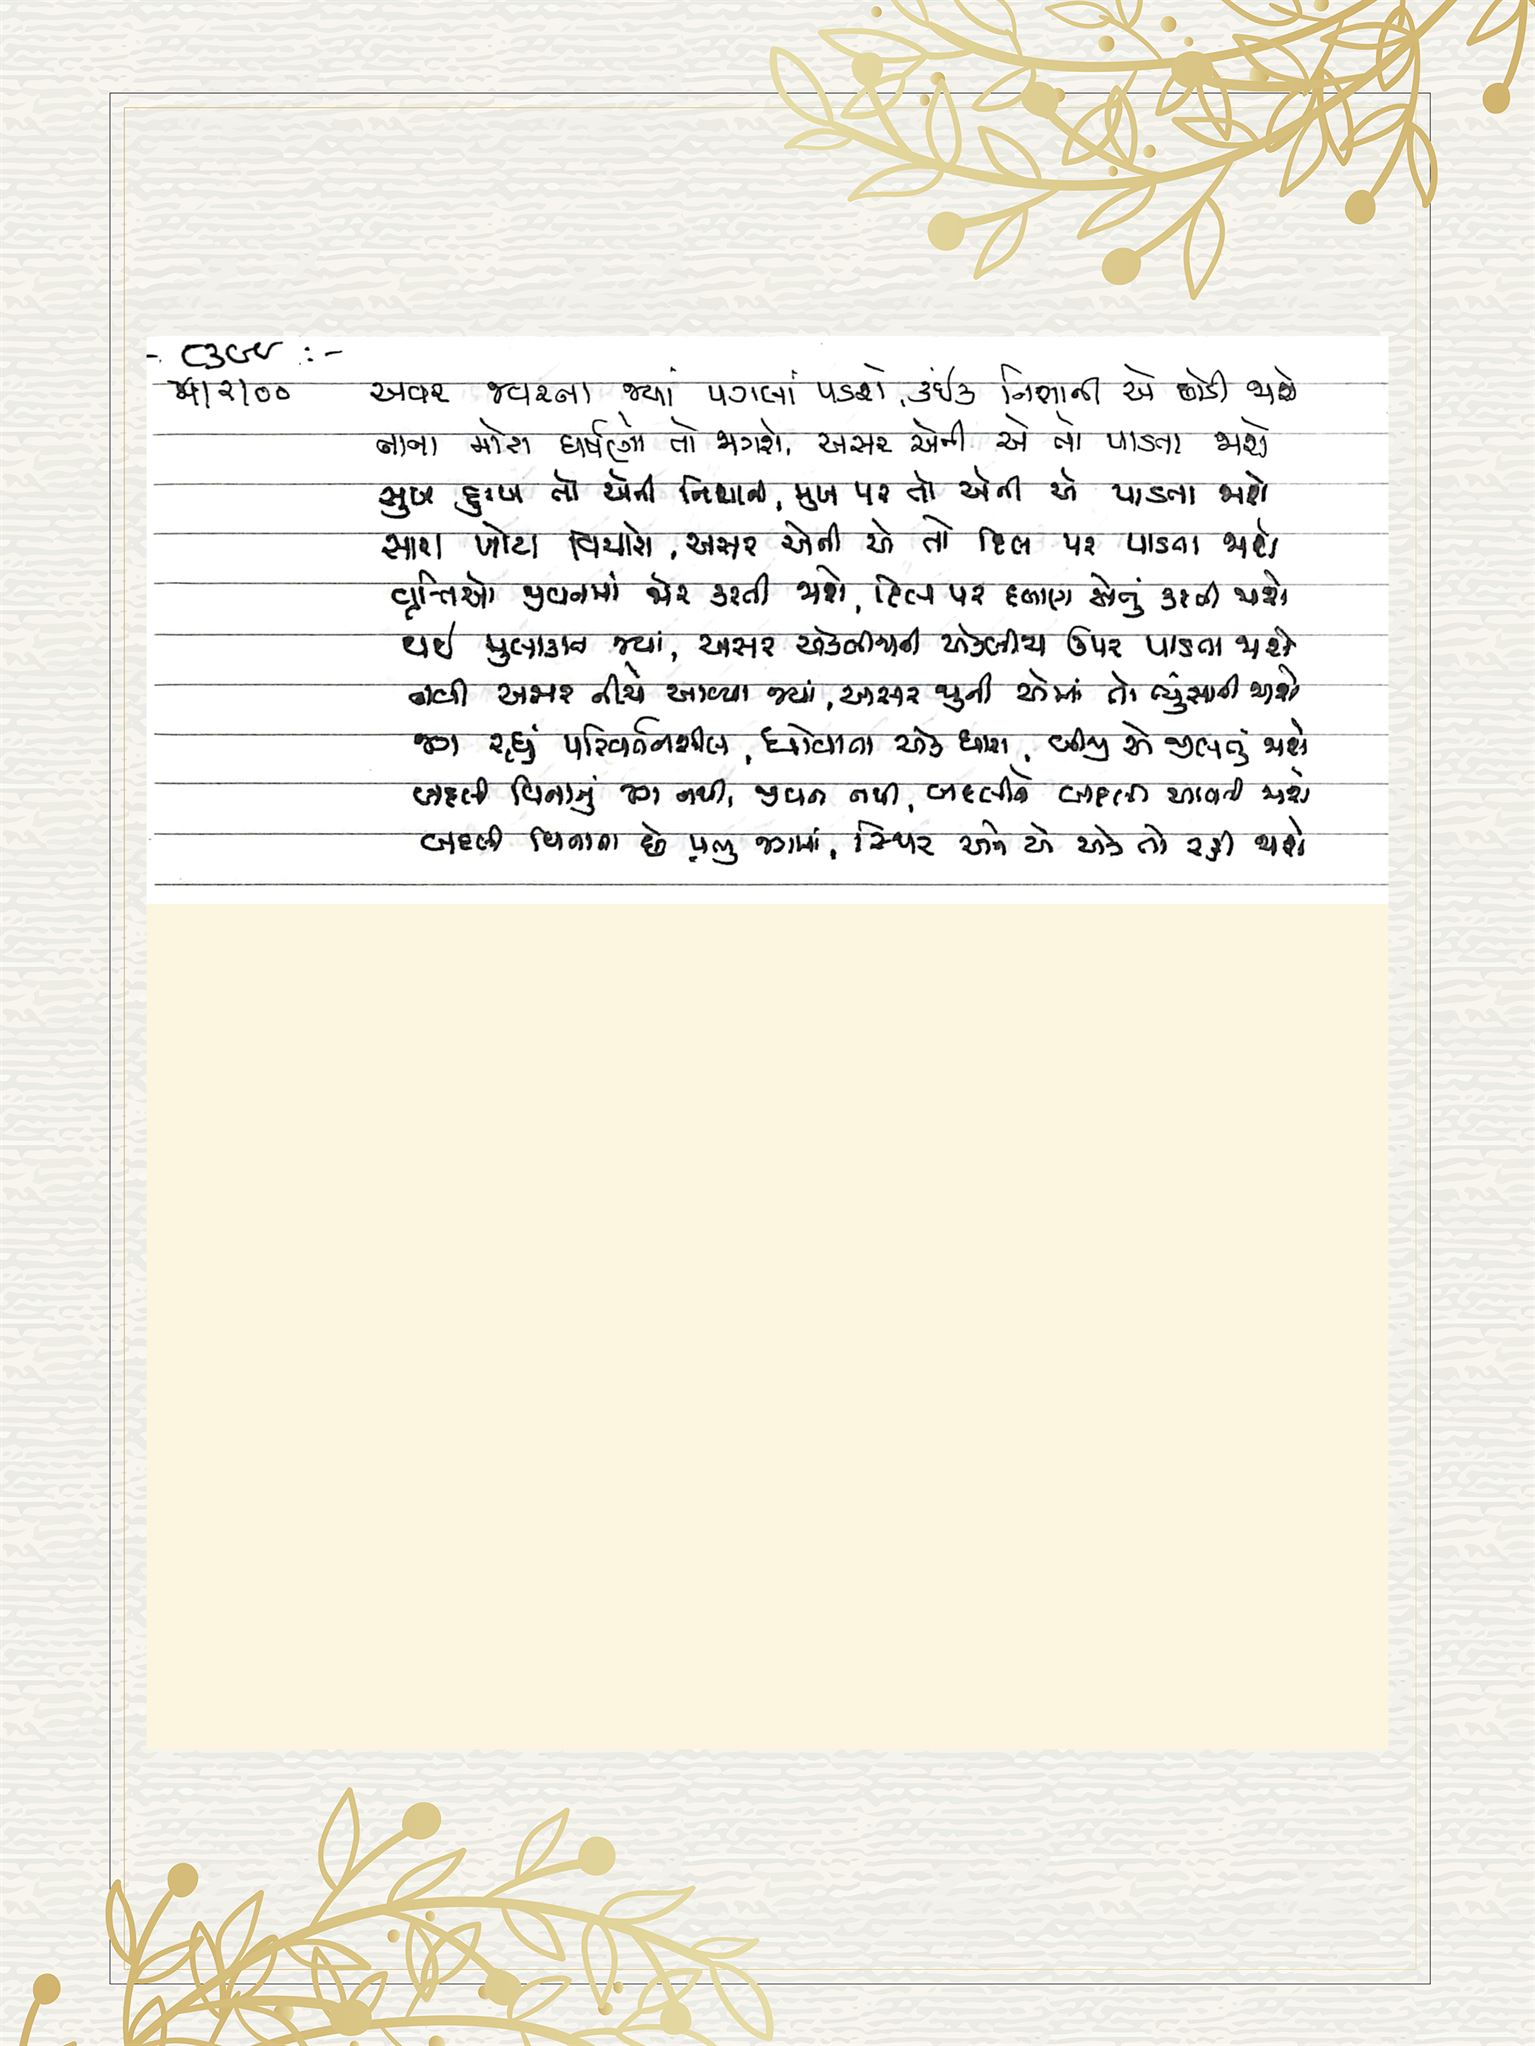 અવર જવરના જ્યાં પગલાં પડશે, કંઈક નિશાની એ છોડી જાશે
નાના મોટા ઘર્ષણો તો જાગશે, અસર એની એ તો પાડતા જાશે
સુખ દુઃખ તો એની નિશાની, મુખ પર તો એની એ પાડતા જાશે
સારા ખોટા વિચારો, અસર એની એ તો દિલ પર પાડતા જાશે
વૃત્તિઓ જીવનમાં જોર કરતી જાશે, દિલ પર દબાણ એનું કરતી જાશે
થઈ મુલાકાત જ્યાં, અસર એકબીજાની એકબીજા ઉપર પાડતા જાશે
નવી અસર નીચે આવ્યા જ્યાં, અસર જુની એમાં તો ભુંસાતી જાશે
જગ રહ્યું પરિવર્તનશીલ, ધોવાતા એક ધારા, બીજી એ ઝીલતું જાશે
બદલી વિનાનું જગ નથી, જીવન નથી, બદલીને બદલી આવતી જાશે
બદલી વિનાના છે પ્રભુ જગમાં, સ્થિર એને એ એક તો રહી જાશે